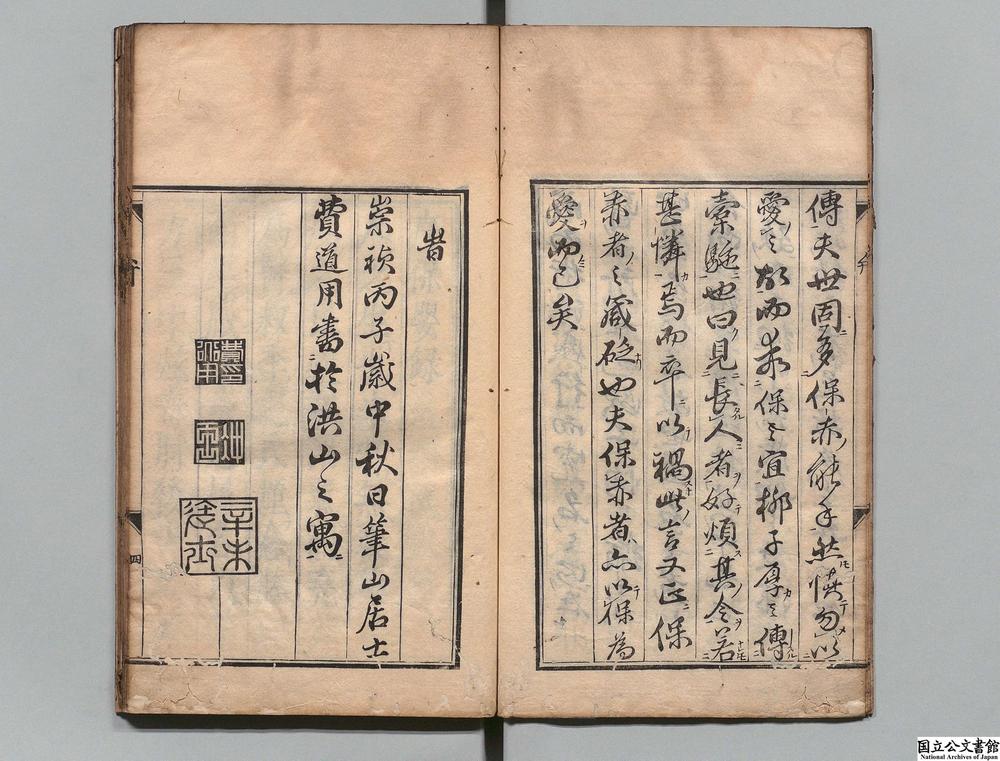 傳夫世固多保赤能手然慎勿以
愛之故而失保之宜柳子厚之傳
橐駝也曰見長人者好煩其令若
甚憐焉而卒以禍此言又正保
赤者之箴砭也夫保赤者亦以保為
愛而已矣
旹
崇禎丙子歲中秋日筆山居士
費道用書於洪山之寓
費印道用
辛未進士
四
国立公文書館
National Archives of Japan